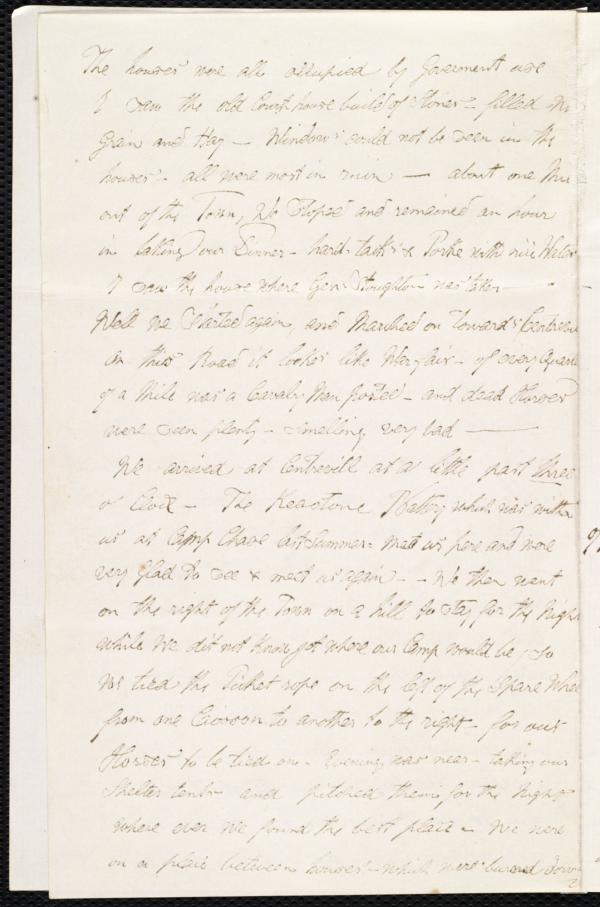 The houses were all occupied by Goverment use
I saw the old Court house build of Stones - filled
Grain and Hay - Windows could not be seen in the
houses - all were most in ruin — about one
out of the Town, We Stoped and remained an hour
in taking our Dinner - hard tack's & Porke with
I saw the house where Gen. Stoughton was taken -
Well we Started again, and Marched on towards
On this Road it lookes like Warfair - of every
of a Mile was a Cavalry Man posted - and dead Horses
were seen plenty - smelling very bad —
We arrived at Centrevill at a little past three
o Clock - The Keastone Battery which was with
us at Camp Chase last Summer = met us here and were
very glad to see & meet us again - - We then went
on the right of the Town on a hill to stay for the
while we did not know yet where our Camp would be, So
we tied the Picket rope on the left of the Spare
from one Caisson to another to the right - for our
Horses to be tied on - Evening was near - taking our
Shelter tents and pitched them for the Night
where ever we found the best place - We were
on a place between houses - which were burned